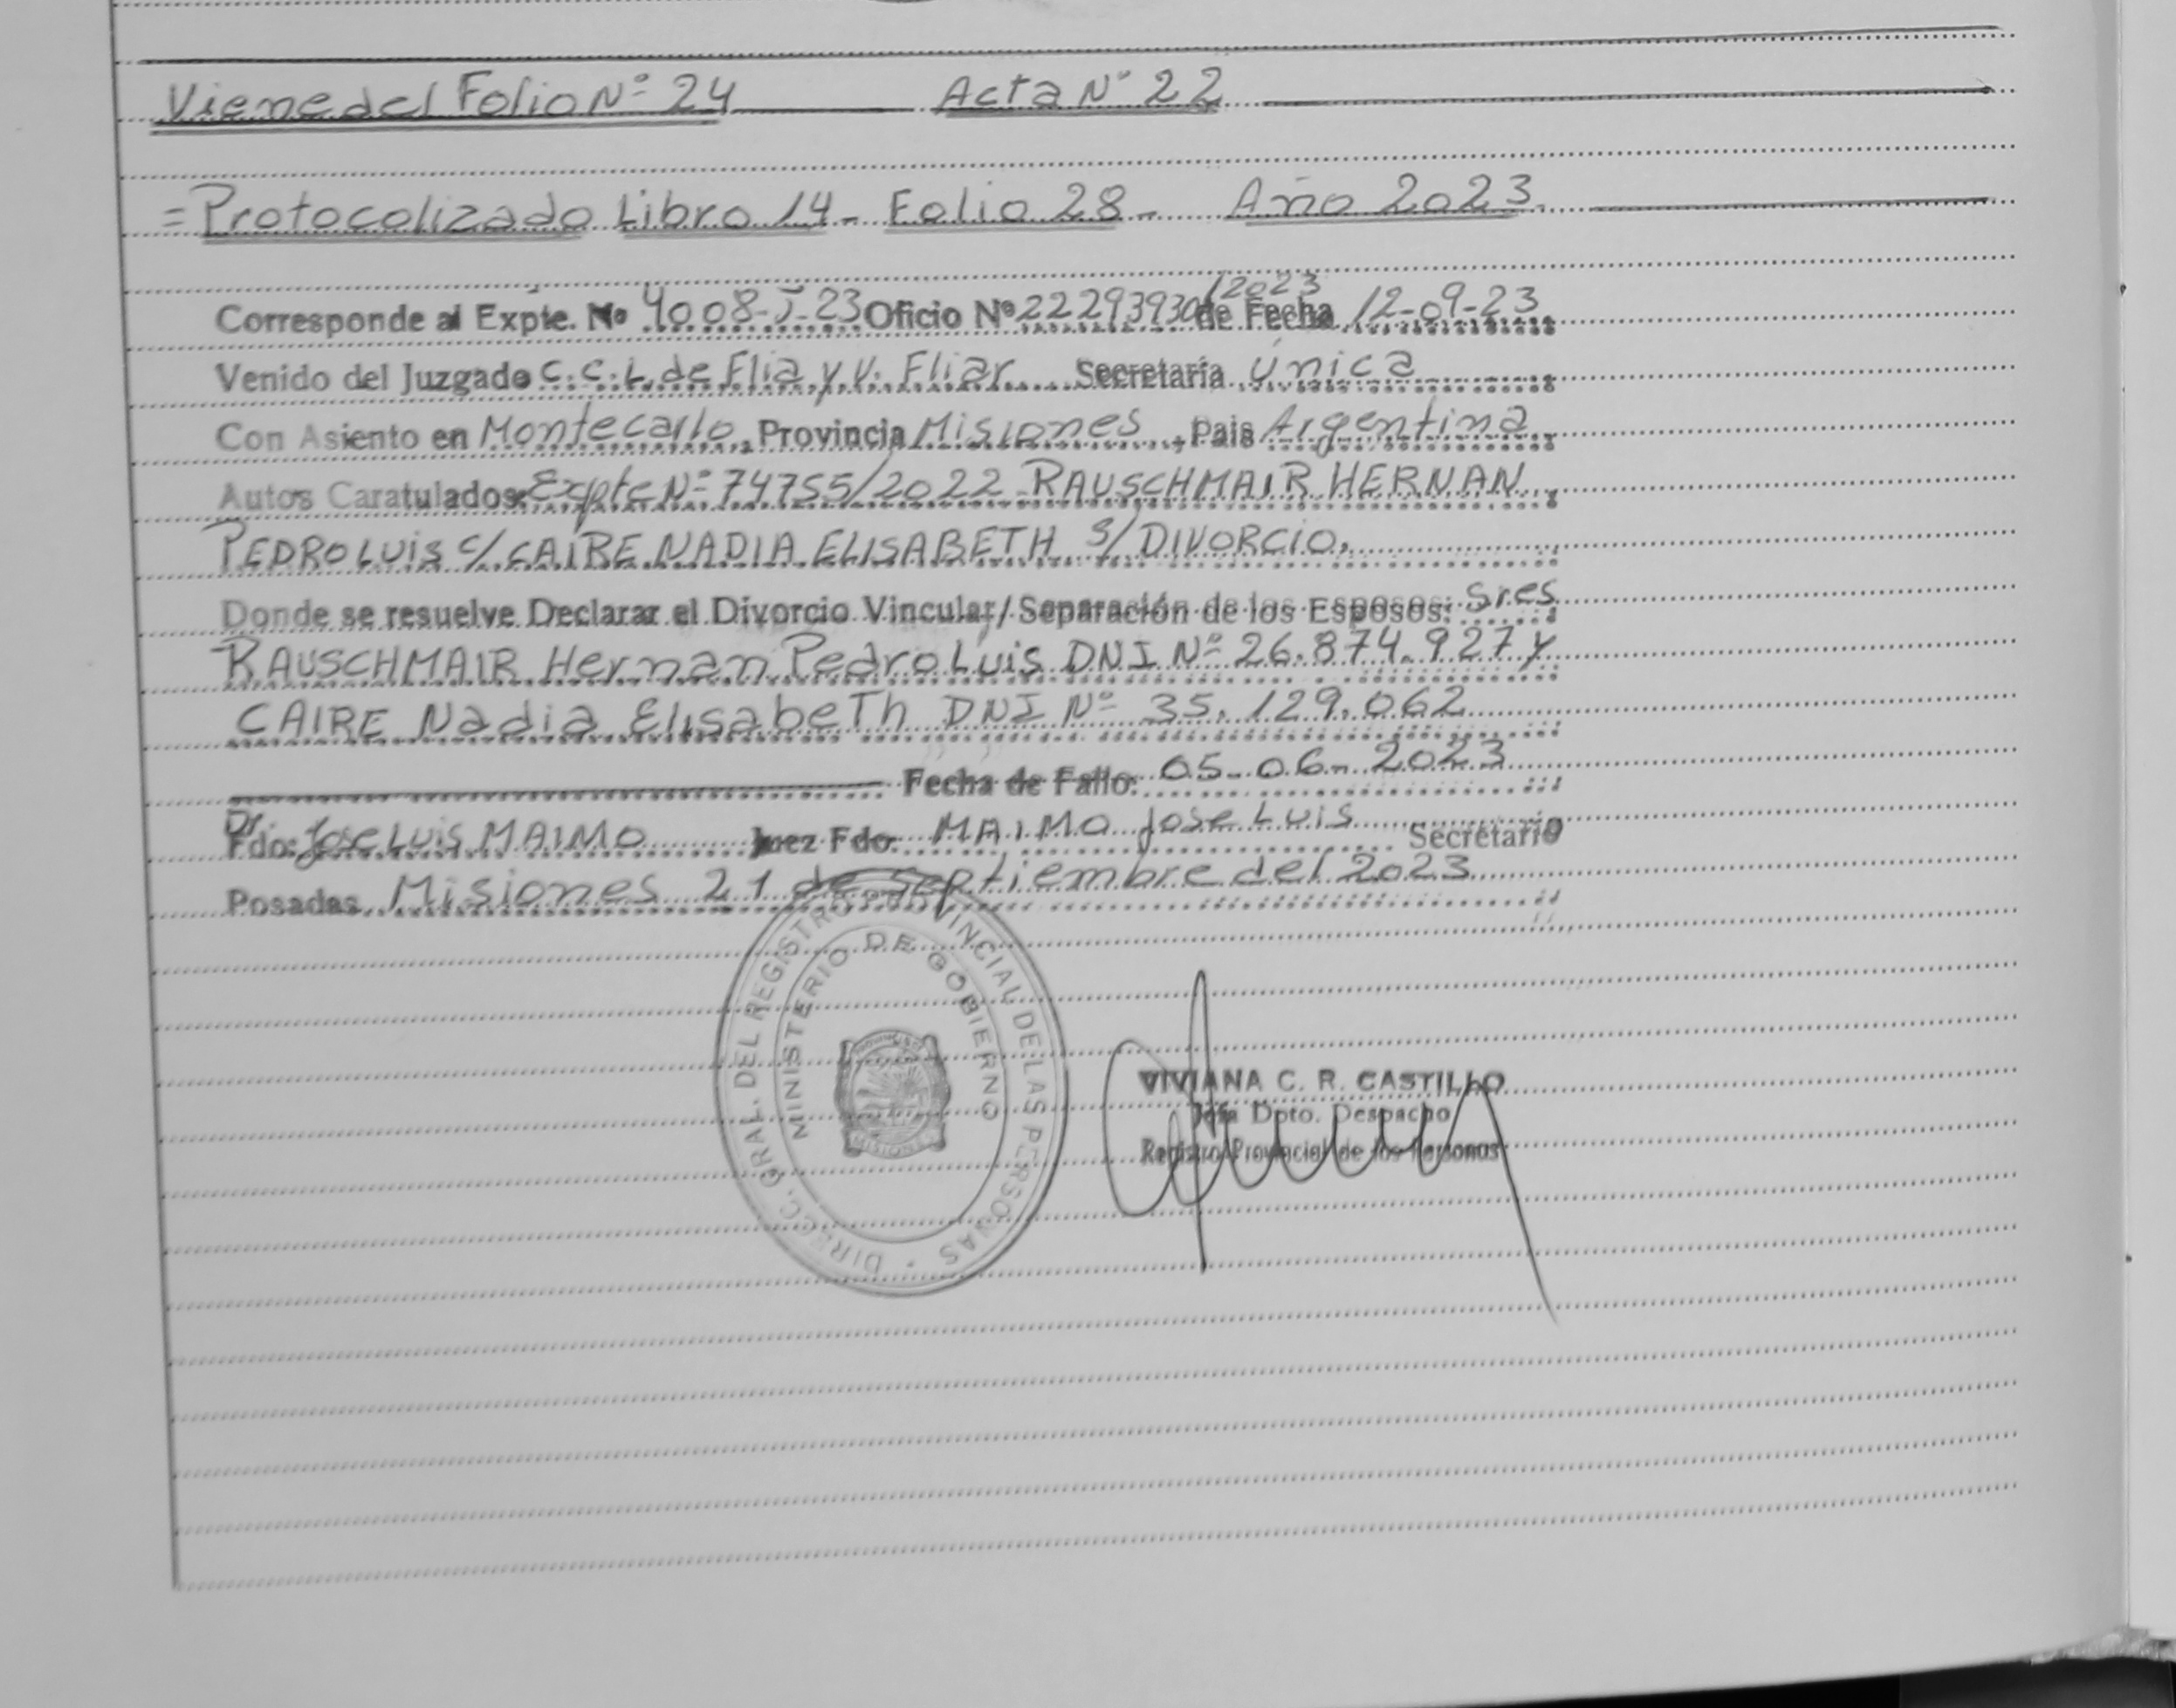 Viene del Folio Nº 24 Acta Nº 22
= Protocolizado Libro 14 - Folio 28 - Año 2023.
Corresponde al Expte. Nº 4008-J-23 Oficio Nº 22293930/2023 de Fecha 12-09-23
Venido del Juzgado C.C.L. de Flia y V. Fliar Secretaría única
Con Asiento en Montecarlo, Provincia Misiones, Pais Argentina
Autos Caratulados: Expte Nº 74755/2022 RAUSCHMAIR HERNAN
PEDRO LUIS C/ CAIRE NADIA ELISABETH S/ DIVORCIO.
Donde se resuelve Declarar el Divorcio Vincular/Separación de los Esposos: Sres
RAUSCHMAIR Hernan Pedro Luis DNI Nº 26.874.927 y
CAIRE Nadia Elisabeth DNI Nº 35.129.062
Fecha de Fallo: 05-06-2023
Fdo: Dr. Jose Luis MAIMO Juez Fdo: MAIMO Jose Luis Secretario
Posadas Misiones 21 de Septiembre del 2023
DIRECC. GRAL. DEL REGISTRO PROVINCIAL DE LAS PERSONAS
MINISTERIO DE GOBIERNO
MISIONES
VIVIANA C. R. CASTILLO
Jefa Dpto. Despacho
Registro Provincial de las Personas